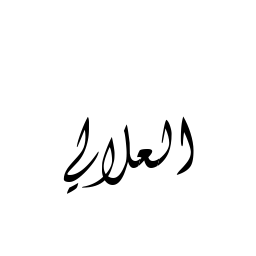 العلالي